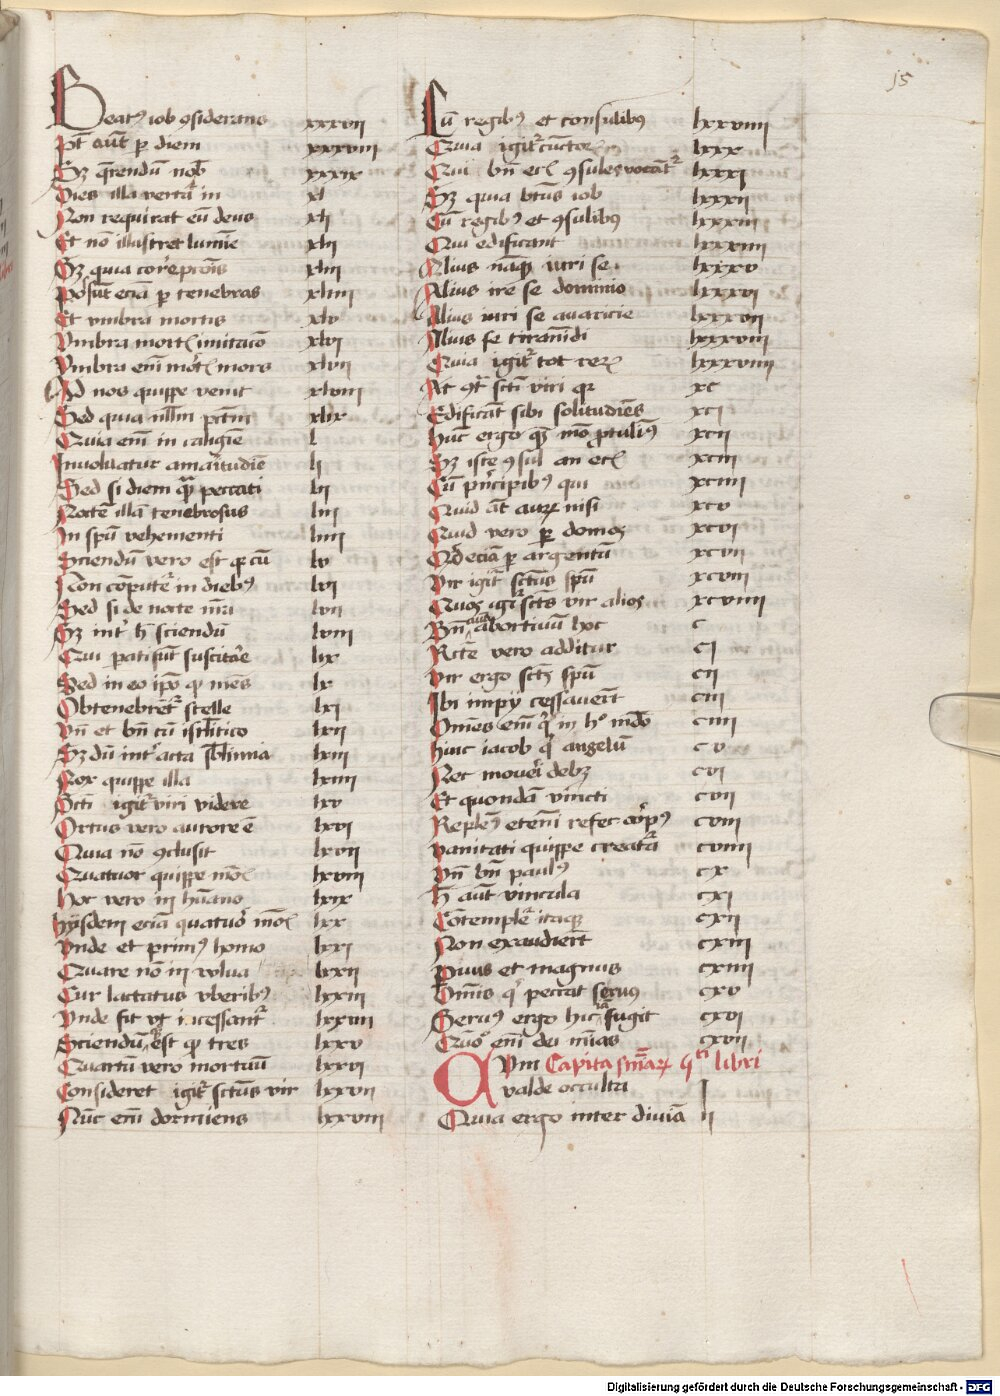 15
Beatꝰ iob ꝯsiderans xxxvii
Pt̄ aūt p diem xxxviii
Sꝫ q̄rendū nob̄ xxxix
Dies illa vertat᷑ in xl
Non requirat eū deus xli
Et nō illustret lumīe xlii
Sꝫ quia xliii
Possūt eciā p tenebras xliiii
Et vmbra mortis xlv
Vmbra mort᷑ imitacō xlvi
Vmbra enī mort᷑ mors xlvii
Ad nos quippe venit xlviii
Sed quia xlix
Quia enī in caligīe l
Inuoluatur amaritudīe li
Sed si diem peccati lii
Noctē illā tenebrosus liii
In spū vehementi liiii
Sciendū vero est ꝙ cū lv
Non cōputet᷑ in diebꝰ lvi
Sed si de nocte lvii
Sꝫ int᷑ h̄ sciendū lviii
Qui pati sūt suscitāe lix
Sed in eo ip̄o ꝙ mēs lx
Obtenebrēt᷑ stelle lxi
Vn̄ et bn̄ cū isrl̄itico lxii
Sꝫ dū int᷑ acta lxiii
Nox quippe illa lxiiii
Sct̄i igit᷑ viri videre lxv
Ortus vero aurore ē lxvi
Quia nō ꝯclusit lxvii
Quatuor quippe mod᷑ lxviii
Hoc vero in hūano lxix
Hijsdem eciā quatuor mod᷑ lxx
Vnde et primꝰ homo lxxi
Quare nō in vulua lxxii
Cur lactatus vberibꝰ lxxiii
Vnde fit vt īcessant᷑ lxxiiii
Sciendū est ꝙ tres lxxv
Quartū vero mortuū lxxvi
Consideret igit᷑ sctūs vir lxxvii
Nūc enī dormiens lxxviii
Cū regibꝰ et consulibꝰ lxxviiii
Quia igit᷑ cūctor᷑ lxxx
Qui bn̄ eccl᷑ ꝯsules vocāt᷑ lxxxi
Sꝫ quia btūs iob lxxxii
Cū regibꝰ et ꝯsulibꝰ lxxxiii
Qui edificant lxxxiiii
Alius nāqꝫ iuri se lxxxv
Alius ire se dominio lxxxvi
Alius iuri se auaricie lxxxvii
Alius se tirannidi lxxxviii
Quia igit᷑ tot rer᷑ lxxxviiii
At ꝯt᷑ sct̄i viri xc
Edificāt sibi solitudīes xci
Hūc ergo xcii
Sꝫ iste ꝯsul an eccl᷑ xciii
Cū prīcipibꝰ qui xciiii
Quid āt auꝝ nisi xcv
Quid vero p domos xcvi
Qd eciā p argentū xcvii
Vir igit᷑ sctūs spū xcviii
Quos igit᷑ sctūs vir alios xcviiii
Bn̄ aūt abortiuū hoc c
Recte vero additur ci
Vir ergo sctūs spū cii
Ibi impij cessauerūt ciii
Omēs enī q᷑ in hͦ mdō ciiii
Huic iacob q᷑ angelū cv
Nec moueri debꝫ cvi
Et quondā vincti cvii
Repletꝰ etenī refec. corpꝰ cviii
Vanitati quippe creat᷑a cviiii
Vn̄ bn̄ paulꝰ cx
H̄ aūt vincula cxi
Cōtemplet᷑ itaqꝫ cxii
Non exaudierūt cxiii
Pvus et magnus cxiiii
Omīs q᷑ peccat seruꝰ cxv
Seruꝰ ergo hic fugit cxvi
Quō enī dei mīas cxvii
Qvm Capita sūmaꝝ qͥti libri
valde occulta I
Quia ergo inter diuīa II
Digitalisierung gefördert durch die Deutsche Forschungsgemeinschaft - DFG